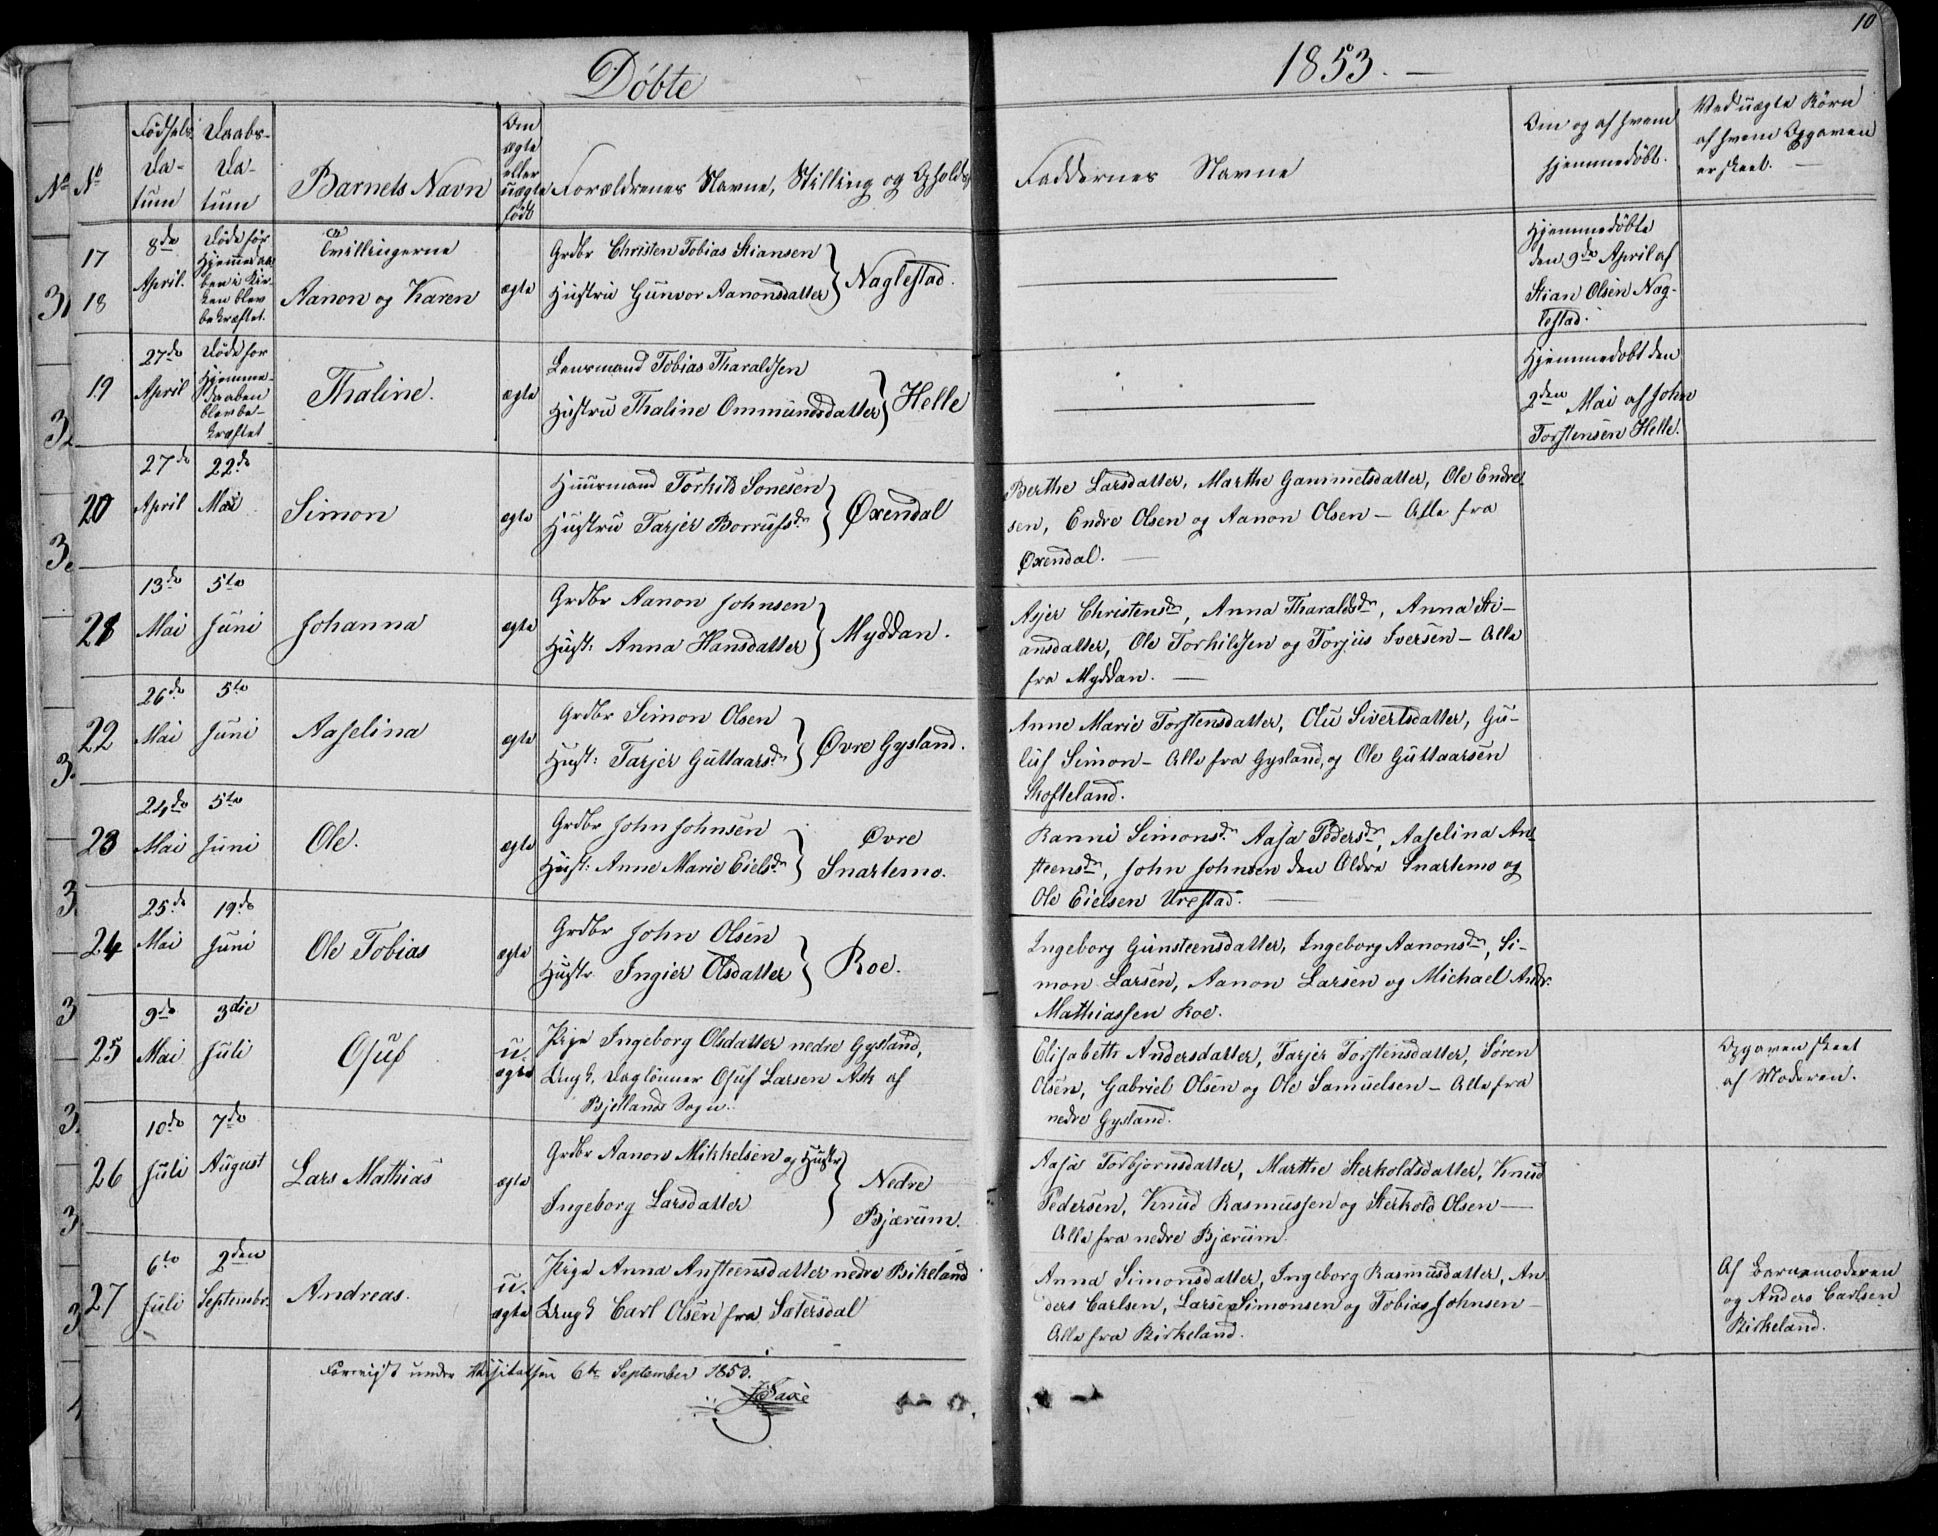 10
Döbte
1853.
No
No
Födsels
Da-
tum
Daabs-
Da-
tum
Barnets Navn
Om
ægte
eller
uægte
född
Forældrenes Navne, Stilling og Opholds
Faddernes Navne
Om og af hvem
hjemmedöbt.
Ved uægte Börn
af hvem Opgaven
er skeet.
17
18
8de
April.
Döde før
Hjemmedaa-
ben i Kir-
ken blev
bekræftet.
Tvillingerne
Aanon og Karen
ægte
Grdbr Christen Tobias Stiansen
Hustru Gunvor Aanonsdatter
Naglestad.
Hjemmedöbte
den 9de April af
Stian Olsen Nag-
lestad.
19
27de
April
Döde for
Hjemme-
daaben
blev be-
kræftet
Thaline.
ægte
Lensmand Tobias Tharaldsen
Hustru Thaline Ommundsdatter
Helle
Hjemmedöbt den
2den Mai af John
Torstensen Helle.
20
27de
April
22de
Mai
Simon
ægte
Huusmand Torkild Sonesen
Hustru Tarjer Borrufsdr
Øxendal
Berthe Larsdatter, Marthe Gammelsdatter, Ole Endre-
sen, Endre Olsen og Aanon Olsen — Alle fra
Øxendal.
21
13de
Mai
5te
Juni
Johanna
ægte
Grdbr Aanon Johnsen
Hust: Anna Hansdatter
Myddan.
Asjer Christensdr, Anna Tharaldsdr, Anna Sti-
ansdatter, Ole Torkildsen og Torjus Iversen — Alle
fra Myddan.
22
26de
Mai
5te
Juni
Aaselina
ægte
Grdbr Simon Olsen
Hust: Tarjer Guttaarsdr
Øvre Gysland.
Anne Marie Torstensdatter, Olu Sivertsdatter, Gu-
luf Simon — Alle fra Gysland, og Ole Guttaarsen
Skofteland.
23
24de
Mai
5te
Juni
Ole.
ægte
Grdbr John Johnsen
Hust: Anne Marie Eielsdr
Øvre
Snartemo.
Ranni Simonsdr Aasa Pedersdr, Aaselina An-
steensdr, John Johnsen den Ældre Snartemo og
Ole Eielsen Urestad.
24
25de
Mai
19de
Juni
Ole Tobias
ægte
Grdbr John Olsen
Hustr. Ingier Olsdatter
Roe.
Ingeborg Gunsteensdatter, Ingeborg Aanonsdr, Si-
mon Larsen, Aanon Larsen og Michael Andr.
Mathiassen Roe.
25
9de
Mai
3die
Juli
Osuf
u-
ægte
Pige Ingeborg Olsdatter nedre Gysland,
Ungk. Daglönner Osuf Larsen Ask af
Bjellands Sogn.
Elisabeth Andersdatter, Tarjer Torstensdatter, Sören
Olsen, Gabriel Olsen og Ole Samuelsen — Alle fra
nedre Gysland.
Opgaven skeet
af Moderen.
26
10de
Juli
7de
August
Lars Mathias
ægte
Grdbr Aanon Mikkelsen og Hustr
Ingeborg Larsdatter
Nedre
Bjærum.
Aasa Torbjornsdatter, Marthe Sterkoldsdatter, Knud
Pedersen, Knud Rasmussen og Sterkold Olsen —
Alle fra nedre Bjærum.
27
6te
Juli
2den
Septembr.
Andreas.
u-
ægte
Pige Anna Ansteensdatter nedre Birkeland
Ungk Carl Olsen fra Sætersdal
Anna Simonsdatter, Ingeborg Rasmusdatter, An-
ders Carlsen, Larse Simonsen og Tobias Johnsen —
Alle fra Birkeland.
Af Barnemoderen
og Anders Carlsen
Birkeland.
Forevist under Visitatsen 6te September 1853.